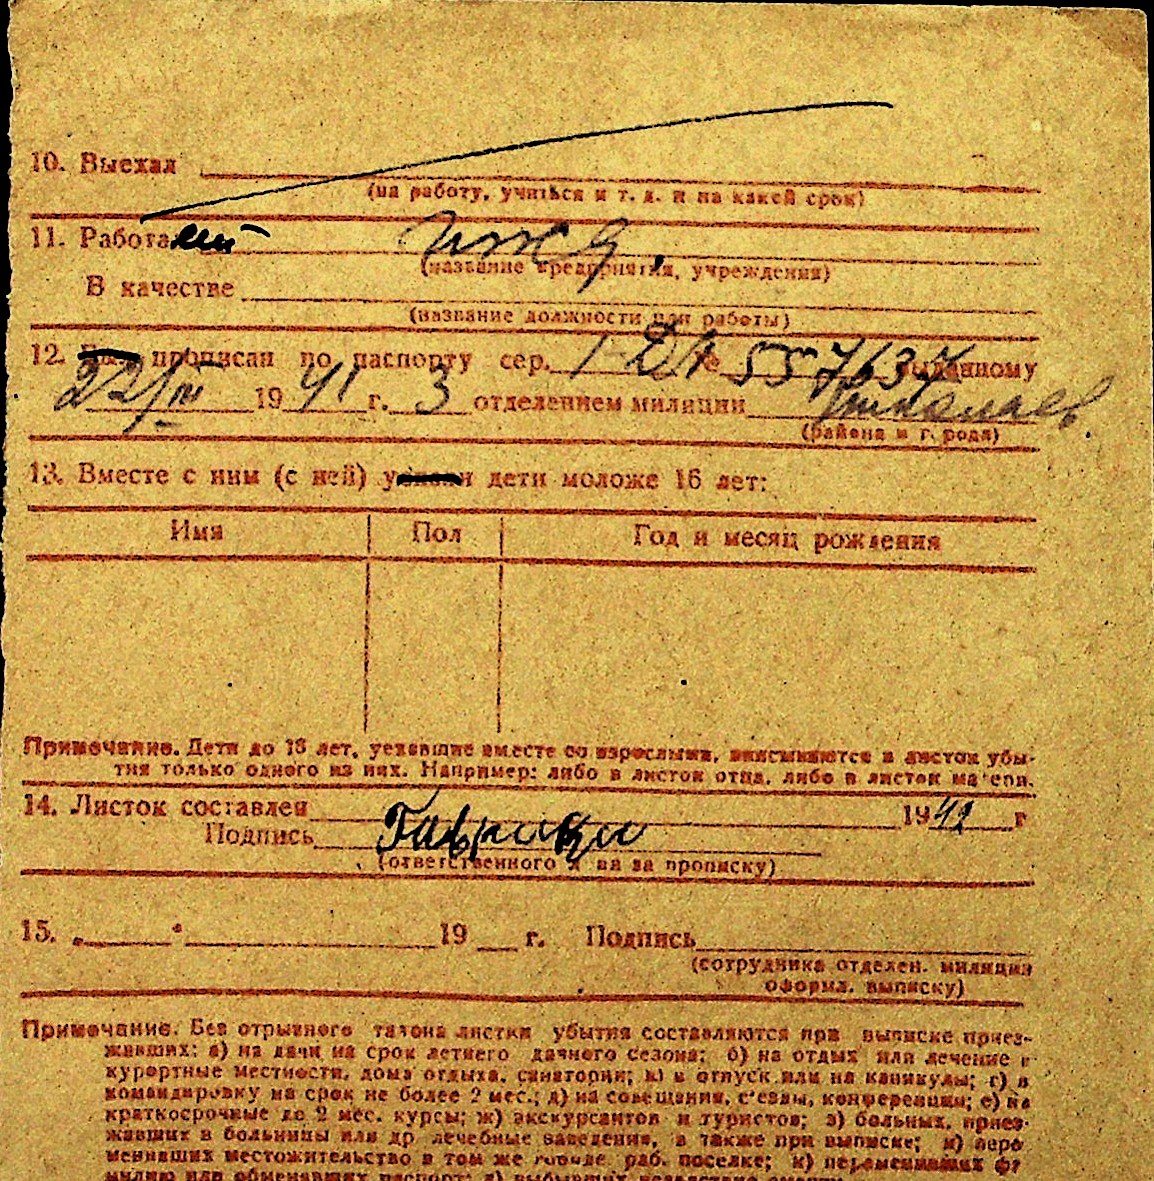 10. Выехал
(на работу, учиться и т. д. и на какой срок)
11. Работа
(название предприятия, учреждения)
В качестве
(название должности или работы)
12. прописан по паспорту сер. № 557637 выданному
22/III 1941 г. 3 отделением милиции
(района и города)
13. Вместе с ним (с ней) дети моложе 16 лет:
Имя Пол Год и месяц рождения
Примечание. Дети до 16 лет, уехавшие вместе со взрослыми, вписываются в листок убы-
тия только одного из них. Например: либо в листок отца, либо в листок матери.
14. Листок составлен 1942 г
Подпись
(ответственного за прописку)
15. „ “ 19 г. Подпись
(сотрудника отделен. милиции
оформл. выписку)
Примечание. Без отрывного талона листки убытия составляются при выписке приез-
жавших: а) на дачи на срок летнего дачного сезона; б) на отдых или лечение в
курортные местности, дома отдыха, санатории; в) в отпуск или на каникулы; г) в
командировку на срок не более 2 мес.; д) на совещания, с'езды, конференции; е) на
краткосрочные до 2 мес. курсы; ж) экскурсантов и туристов; з) больных, приез-
жавших в больницы или др лечебные заведения, а также при выписке; и) пере
менивших местожительство в том же городе раб. поселке; к) переменивших фа
милию или обменявших паспорт; л) выбывших вследствие смерти.